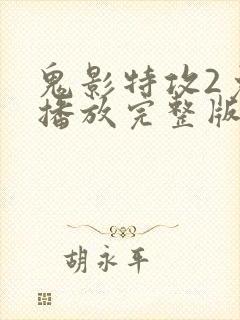 鬼影特攻2
播放完整版
胡永平